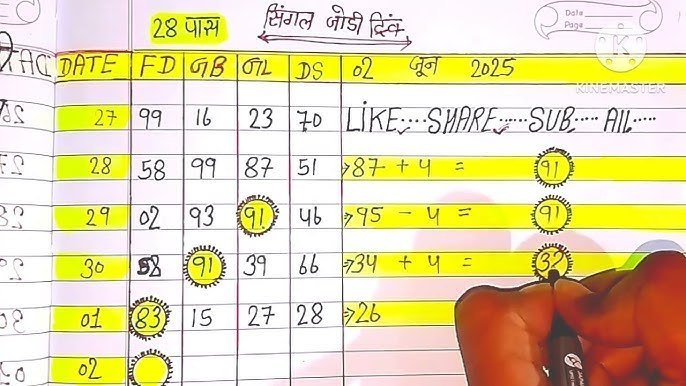 28 पास
सिंगल जोडी ट्रिक
Date
Page
K
KINEMASTER
DATE FD GB GL DS 02 जून 2025
27 99 16 23 70 LIKE.... SHARE..... SUB.... All.....
28 58 99 87 51 87 + 4 = 91
29 02 93 91 46 95 - 4 = 91
30 91 39 66 34 + 4 = 32
01 83 15 27 28 26
02